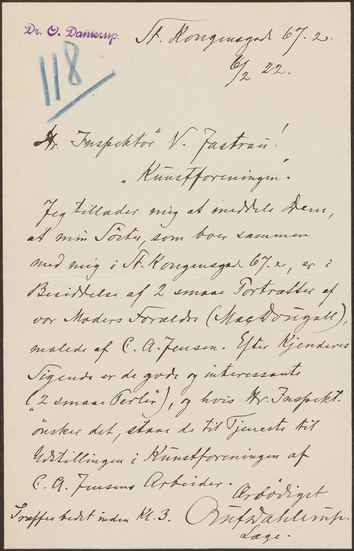 Dr. O. Dahlerup.
118
St. Kongensgade 67. 2.
6/2 22.
Hr. Inspektør V. Jastrau!
"Kunstforeningen".
Jeg tillader mig at meddele Dem,
at min Søster, som boer sammen
med mig i St. Kongensgade 67. 2, er i
Besiddelse af 2 smaae Portrætter af
vor Moders Forældre (MacDougall),
malede af C. A. Jensen. Efter Kjenderes
Sigende er de gode og interessante
("2 smaae Perler"), og hvis Hr. Inspekt.
ønsker det, staae de til Tjeneste til
Udstillingen i Kunstforeningen af
C. A. Jensens Arbeider.
Ærbødigst
Træffes bedst inden Kl. 3.
Dahlerup.
Læge.